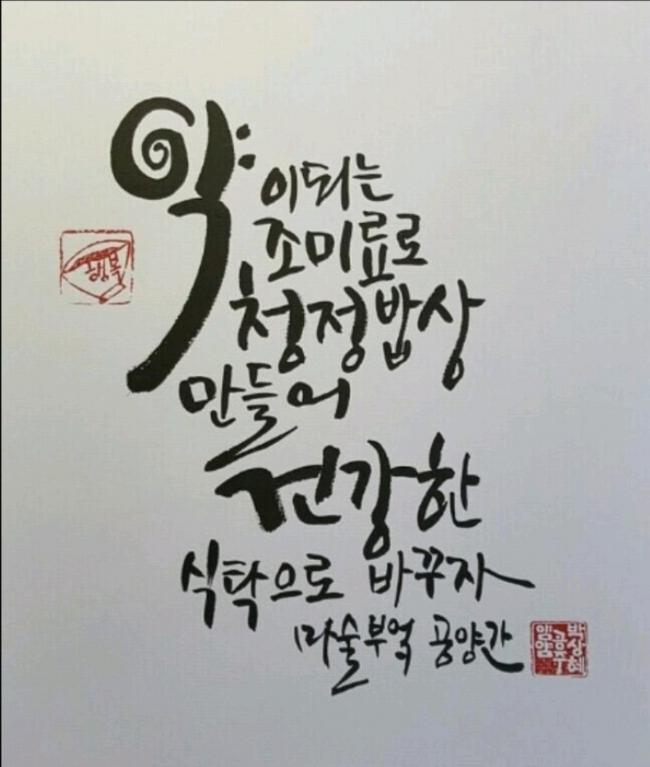 약이되는
조미료로
청정밥상
만들어
건강한
식탁으로 바꾸자
마술부엌 공양간
행복
박상혜